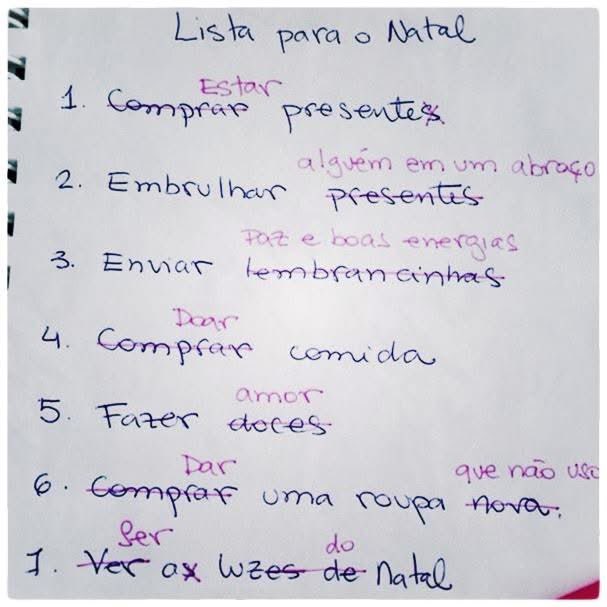 Lista para o Natal
Estar
1. Comprar presentes
alguém em um abraço
2. Embrulhar presentes
Paz e boas energias
3. Enviar lembrancinhas
Doar
4. Comprar comida
amor
5. Fazer doces
Dar que não uso
6. Comprar uma roupa nova.
Ser do
7. Ver as luzes de natal